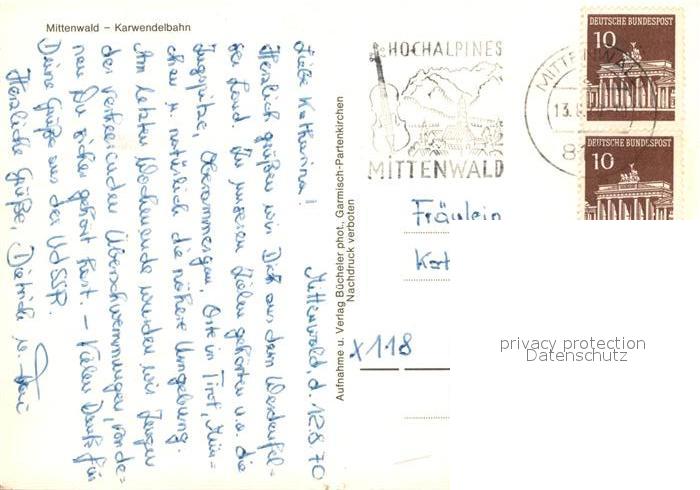 Mittenwald – Karwendelbahn
Mittenwald, d. 12.8.70
Liebe Katharina!
Herzlich grüßen wir Dich aus dem Werdenfel-
ser Land. Zu unseren Zielen gehörten u.a. die
Zugspitze, Oberammergau, Orte in Tirol, Mün-
chen u. natürlich die nähere Umgebung.
Am letzten Wochenende wurden wir Zeugen
der verheerenden Überschwemmungen, von de-
nen Du sicher gehört hast. – Vielen Dank für
Deine Grüße aus der UdSSR.
Herzliche Grüße, Dietrich u.
Aufnahme u. Verlag Bücheler phot., Garmisch-Partenkirchen
Nachdruck verboten
HOCHALPINES
MITTENWALD
MITTENWALD
13.8
8
DEUTSCHE BUNDESPOST
10
DEUTSCHE BUNDESPOST
10
Fräulein
Kat
x118
privacy protection
Datenschutz